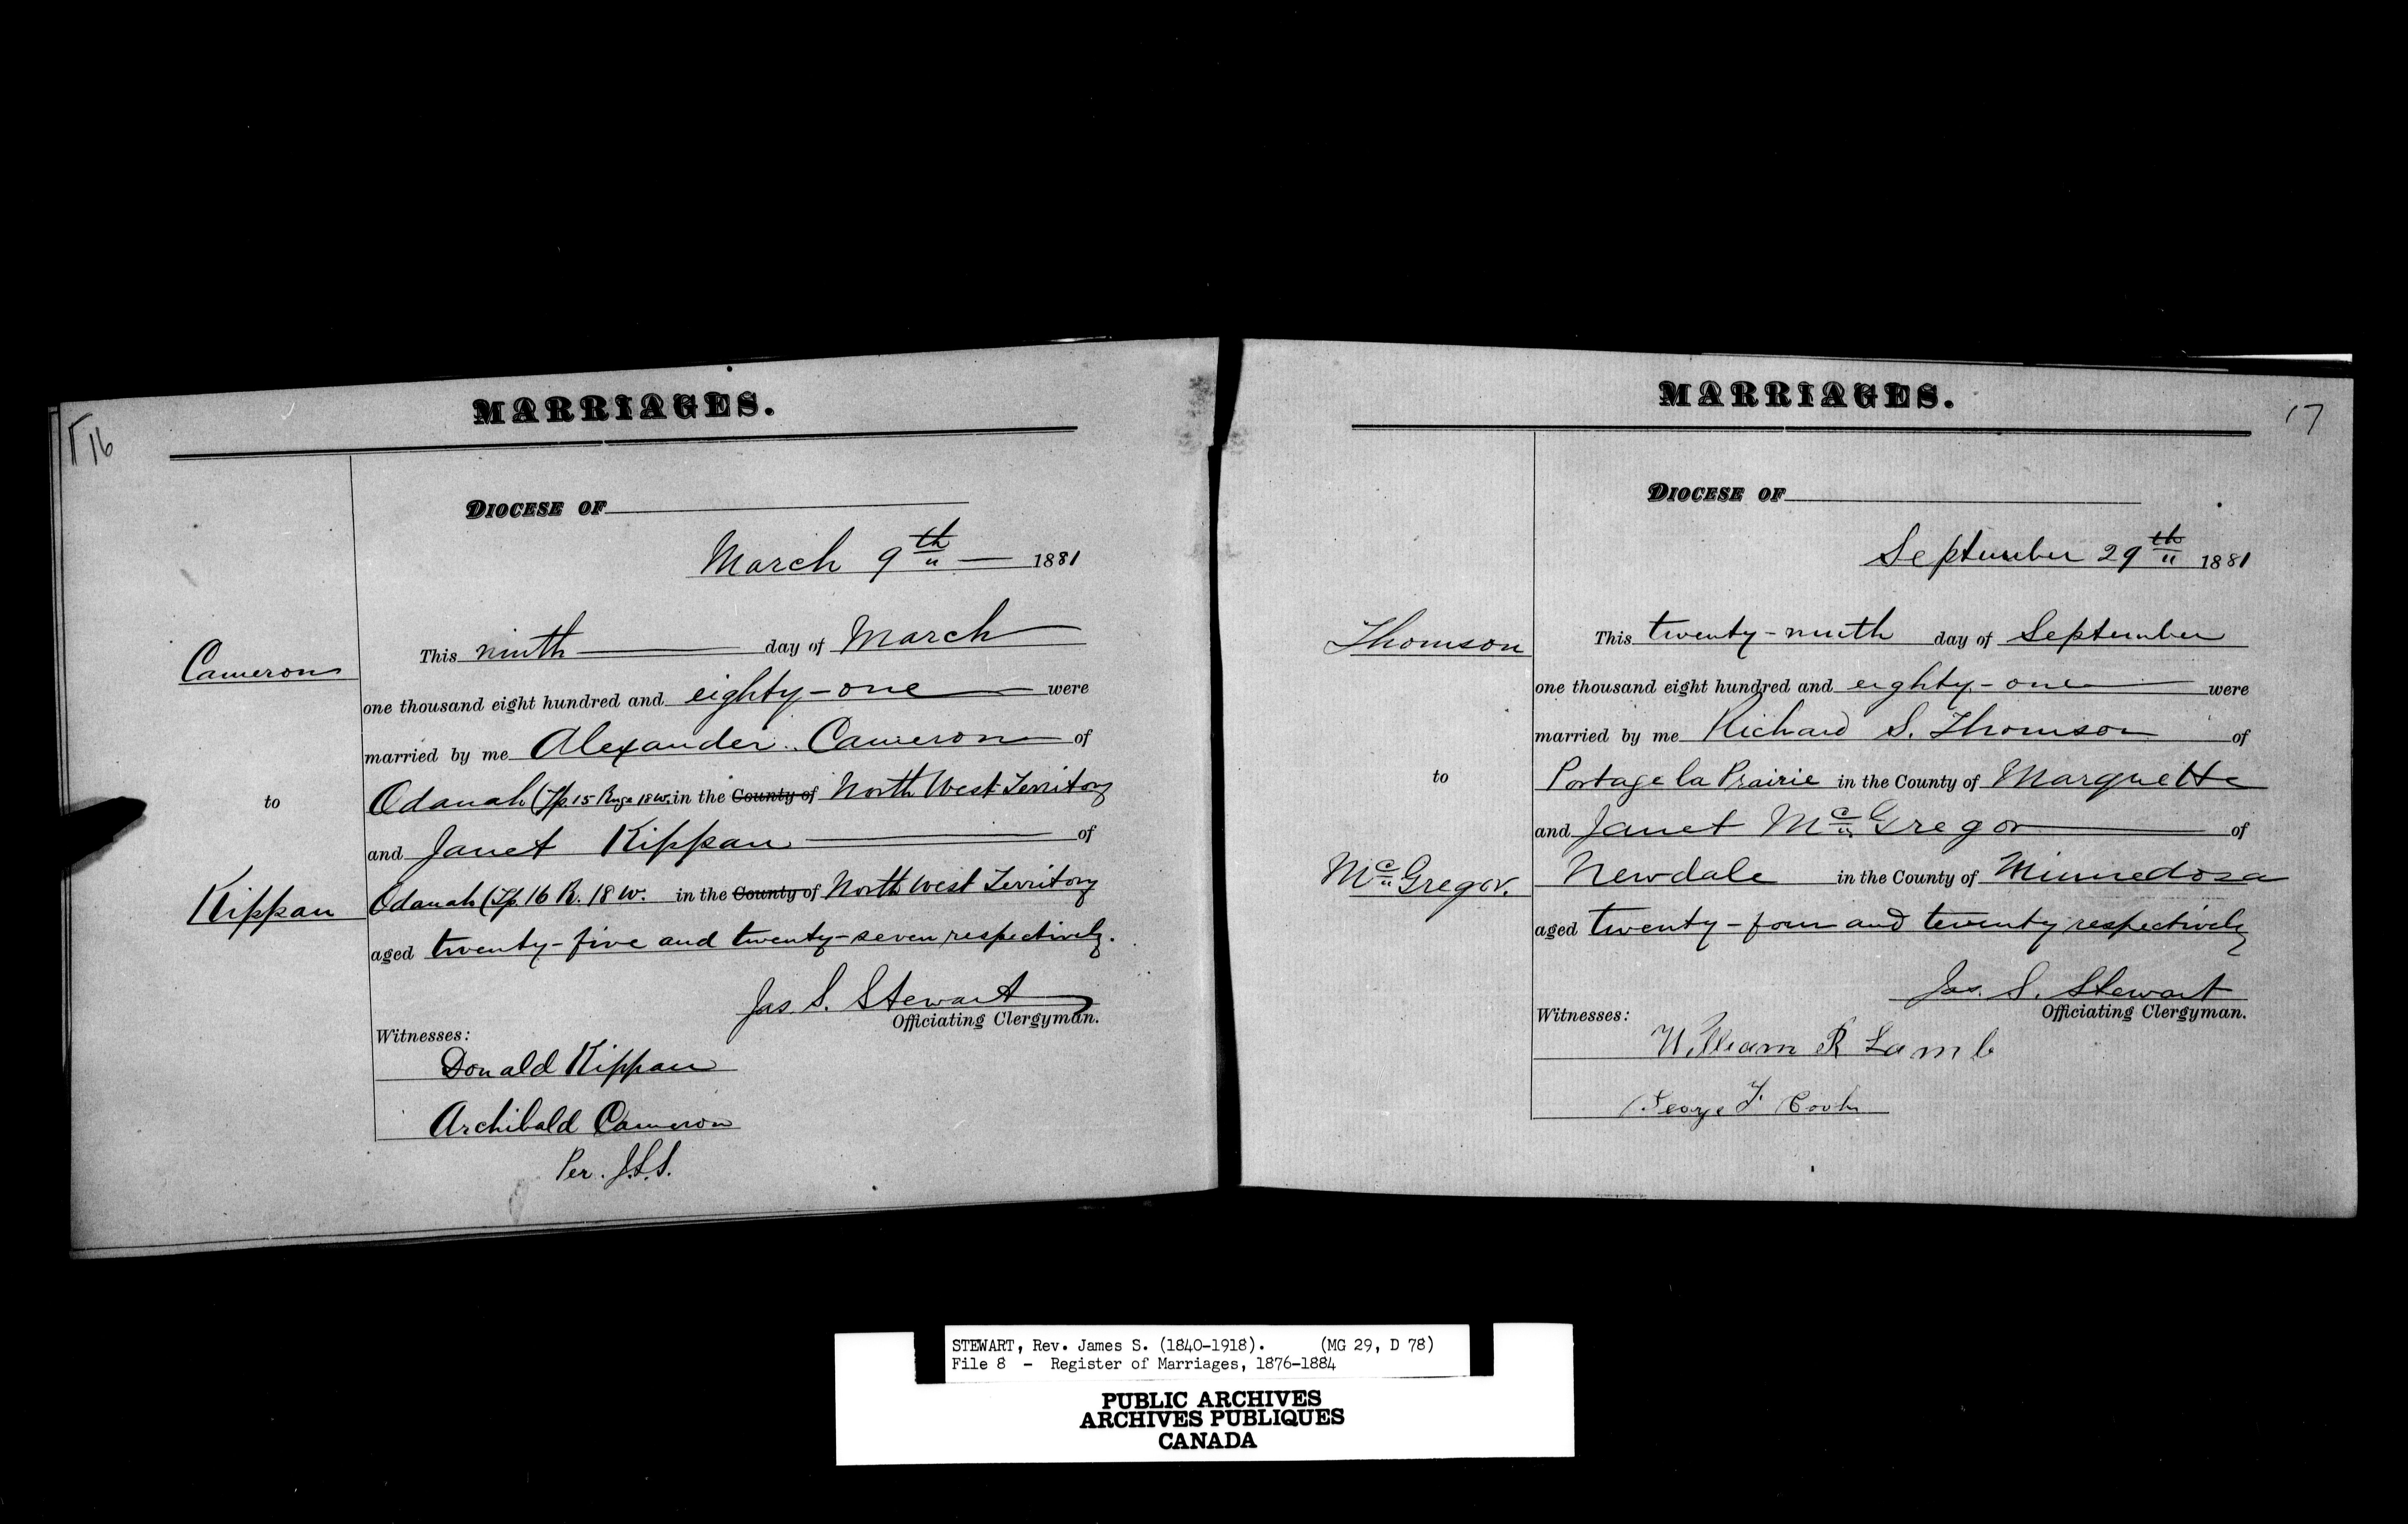 16
MARRIAGES.
DIOCESE OF
March 9th 1881
Cameron
This ninth day of March
one thousand eight hundred and eighty-one were
married by me Alexander Cameron of
to
Odanah (Tp 15 Rnge 18 W. in the County of North West Territory
and Janet Kippan of
Kippan
Odanah (Tp. 16 R. 18 W. in the County of North West Territory
aged twenty-five and twenty-seven respectively.
Jas. S. Stewart
Officiating Clergyman.
Witnesses:
Donald Kippan
Archibald Cameron
Per. J.S.S.
17
MARRIAGES.
DIOCESE OF
September 29th 1881
Thomson
This twenty-ninth day of September
one thousand eight hundred and eighty-one were
married by me Richard S. Thomson of
to
Portage la Prairie in the County of Marquette
and Janet McGregor of
McGregor.
Newdale in the County of Minnedosa
aged twenty-four and twenty respectively
Jas. S. Stewart
Officiating Clergyman.
Witnesses:
William R Lamb
George F.
STEWART, Rev. James S. (1840-1918). (MG 29, D 78)
File 8 - Register of Marriages, 1876-1884
PUBLIC ARCHIVES
ARCHIVES PUBLIQUES
CANADA